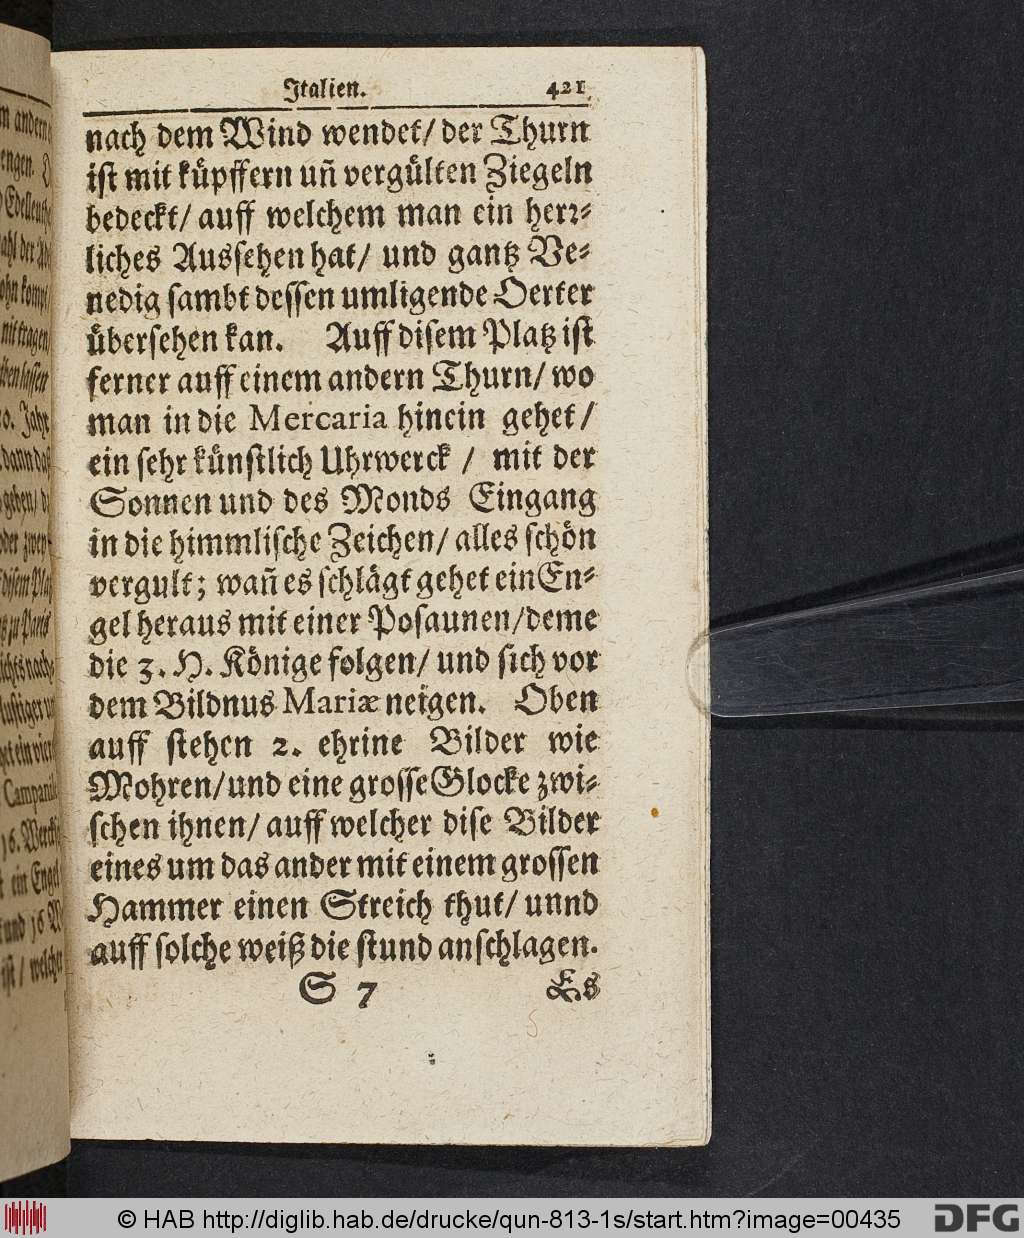 Italien. 421
nach dem Wind wendet/ der Thurn
ist mit küpffern uñ vergülten Ziegeln
bedeckt/ auff welchem man ein herr-
liches Aussehen hat/ und gantz Ve-
nedig sambt dessen umligende Oerter
übersehen kan. Auff disem Platz ist
ferner auff einem andern Thurn/ wo
man in die Mercaria hinein gehet/
ein sehr künstlich Uhrwerck / mit der
Sonnen und des Monds Eingang
in die himmlische Zeichen/ alles schön
vergult; wañ es schlägt gehet ein En-
gel heraus mit einer Posaunen/ deme
die 3. H. Könige folgen/ und sich vor
dem Bildnus Mariæ neigen. Oben
auff stehen 2. ehrine Bilder wie
Mohren/ und eine grosse Glocke zwi-
schen ihnen/ auff welcher dise Bilder
eines um das ander mit einem grossen
Hammer einen Streich thut/ unnd
auff solche weiß die stund anschlagen.
S 7 Es
© HAB http://diglib.hab.de/drucke/qun-813-1s/start.htm?image=00435
DFG